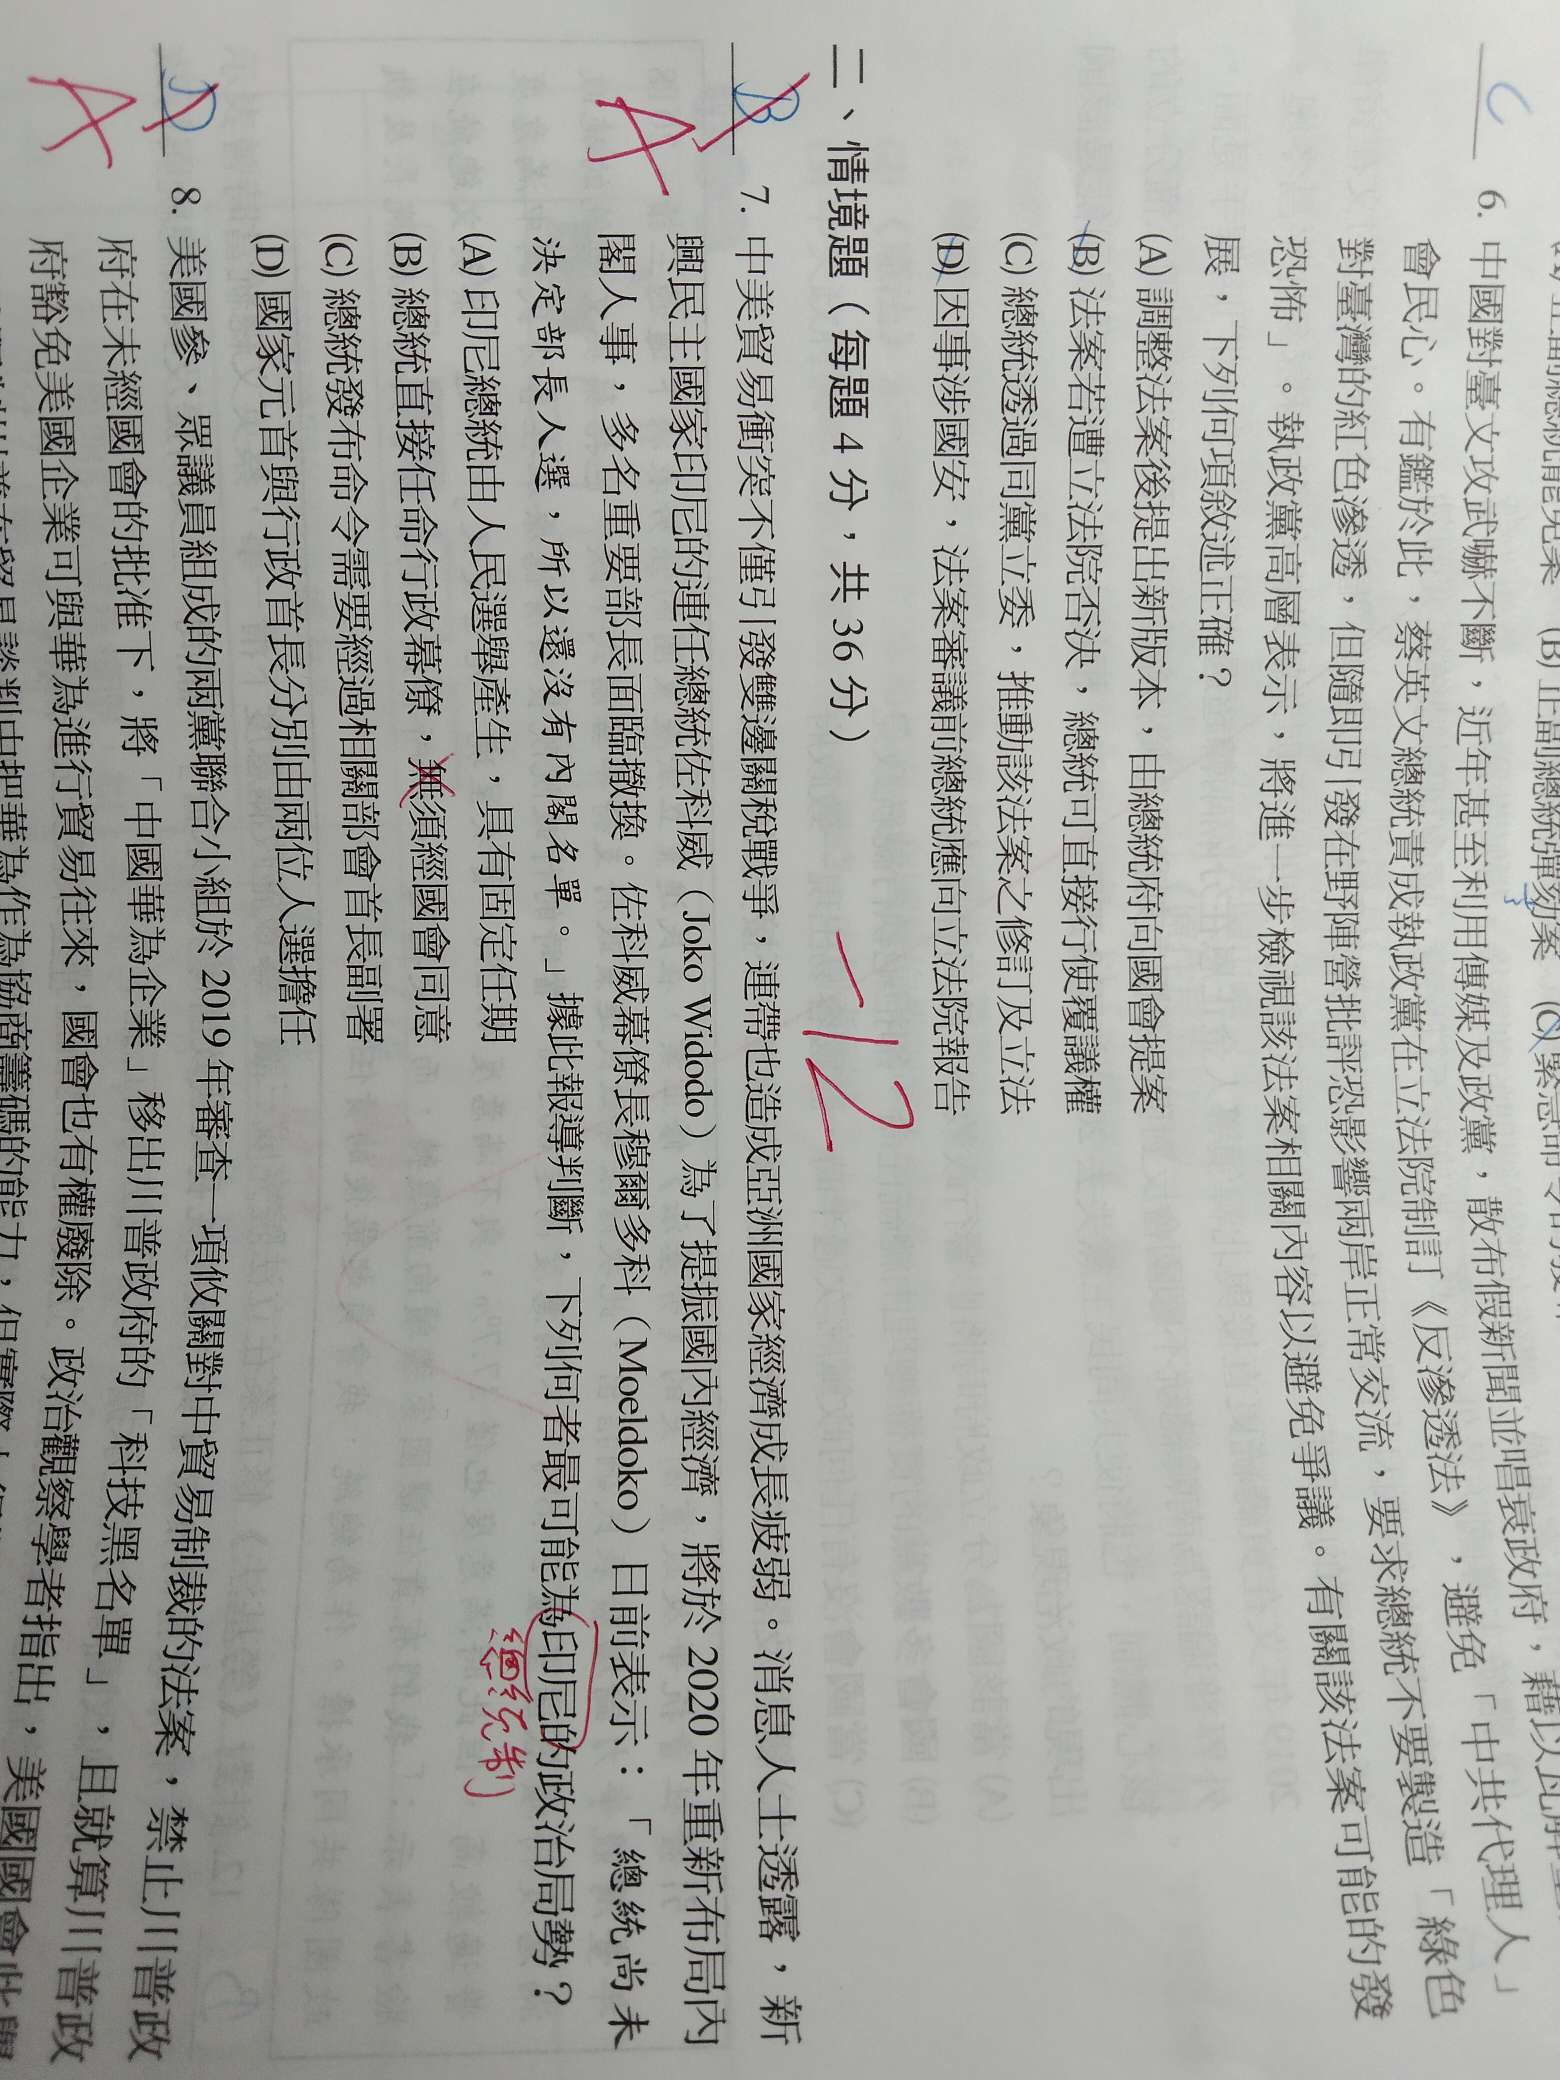 (B)正副總統彈劾案
C
6. 中國對臺文攻武嚇不斷,近年甚至利用傳媒及政黨,散布假新聞並唱衰政府,藉以
會民心。有鑑於此,蔡英文總統責成執政黨在立法院制訂《反滲透法》,避免「中共代理人」
對臺灣的紅色滲透,但隨即引發在野陣營批評恐影響兩岸正常交流,要求總統不要製造「綠色
恐怖」。執政黨高層表示,將進一步檢視該法案相關內容以避免爭議。有關該法案可能的發
展,下列何項敘述正確?
(A) 調整法案後提出新版本,由總統府向國會提案
(B) 法案若遭立法院否決,總統可直接行使覆議權
(C) 總統透過同黨立委,推動該法案之修訂及立法
(D) 因事涉國安,法案審議前總統應向立法院報告
二、情境題(每題 4 分,共 36 分)
-12
B
A
7. 中美貿易衝突不僅引發雙邊關稅戰爭,連帶也造成亞洲國家經濟成長疲弱。消息人士透露,新
興民主國家印尼的連任總統佐科威(Joko Widodo)為了提振國內經濟,將於 2020 年重新布局內
閣人事,多名重要部長面臨撤換。佐科威幕僚長穆爾多科(Moeldoko)日前表示:「總統尚未
決定部長人選,所以還沒有內閣名單。」據此報導判斷,下列何者最可能為印尼的政治局勢?
總統制
(A) 印尼總統由人民選舉產生,具有固定任期
(B) 總統直接任命行政幕僚,無須經國會同意
(C) 總統發布命令需要經過相關部會首長副署
(D) 國家元首與行政首長分別由兩位人選擔任
D
A
8. 美國參、眾議員組成的兩黨聯合小組於 2019 年審查一項攸關對中貿易制裁的法案,禁止川普政
府在未經國會的批准下,將「中國華為企業」移出川普政府的「科技黑名單」,且就算川普政
府豁免美國企業可與華為進行貿易往來,國會也有權廢除。政治觀察學者指出,美國國會此舉
貿易談判中把華為作為協商籌碼的能力,但實際上